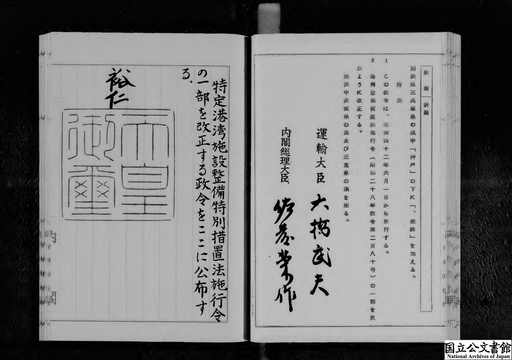 別表第三兵庫県の項中「神戸」の下に「、姫路」を加える。
附則
1 この政令は、昭和四十二年六月一日から施行する。
2 港湾整備促進法施行令（昭和二十八年政令第二百八十号）の一部を次のように改正する。
別表中兵庫県の項及び三重県の項を削る。
運輸大臣 大橋武夫
内閣総理大臣 佐藤栄作
特定港湾施設整備特別措置法施行令
の一部を改正する政令をここに公布す
る。
裕仁
天皇
御璽
国立公文書館
National Archives of Japan